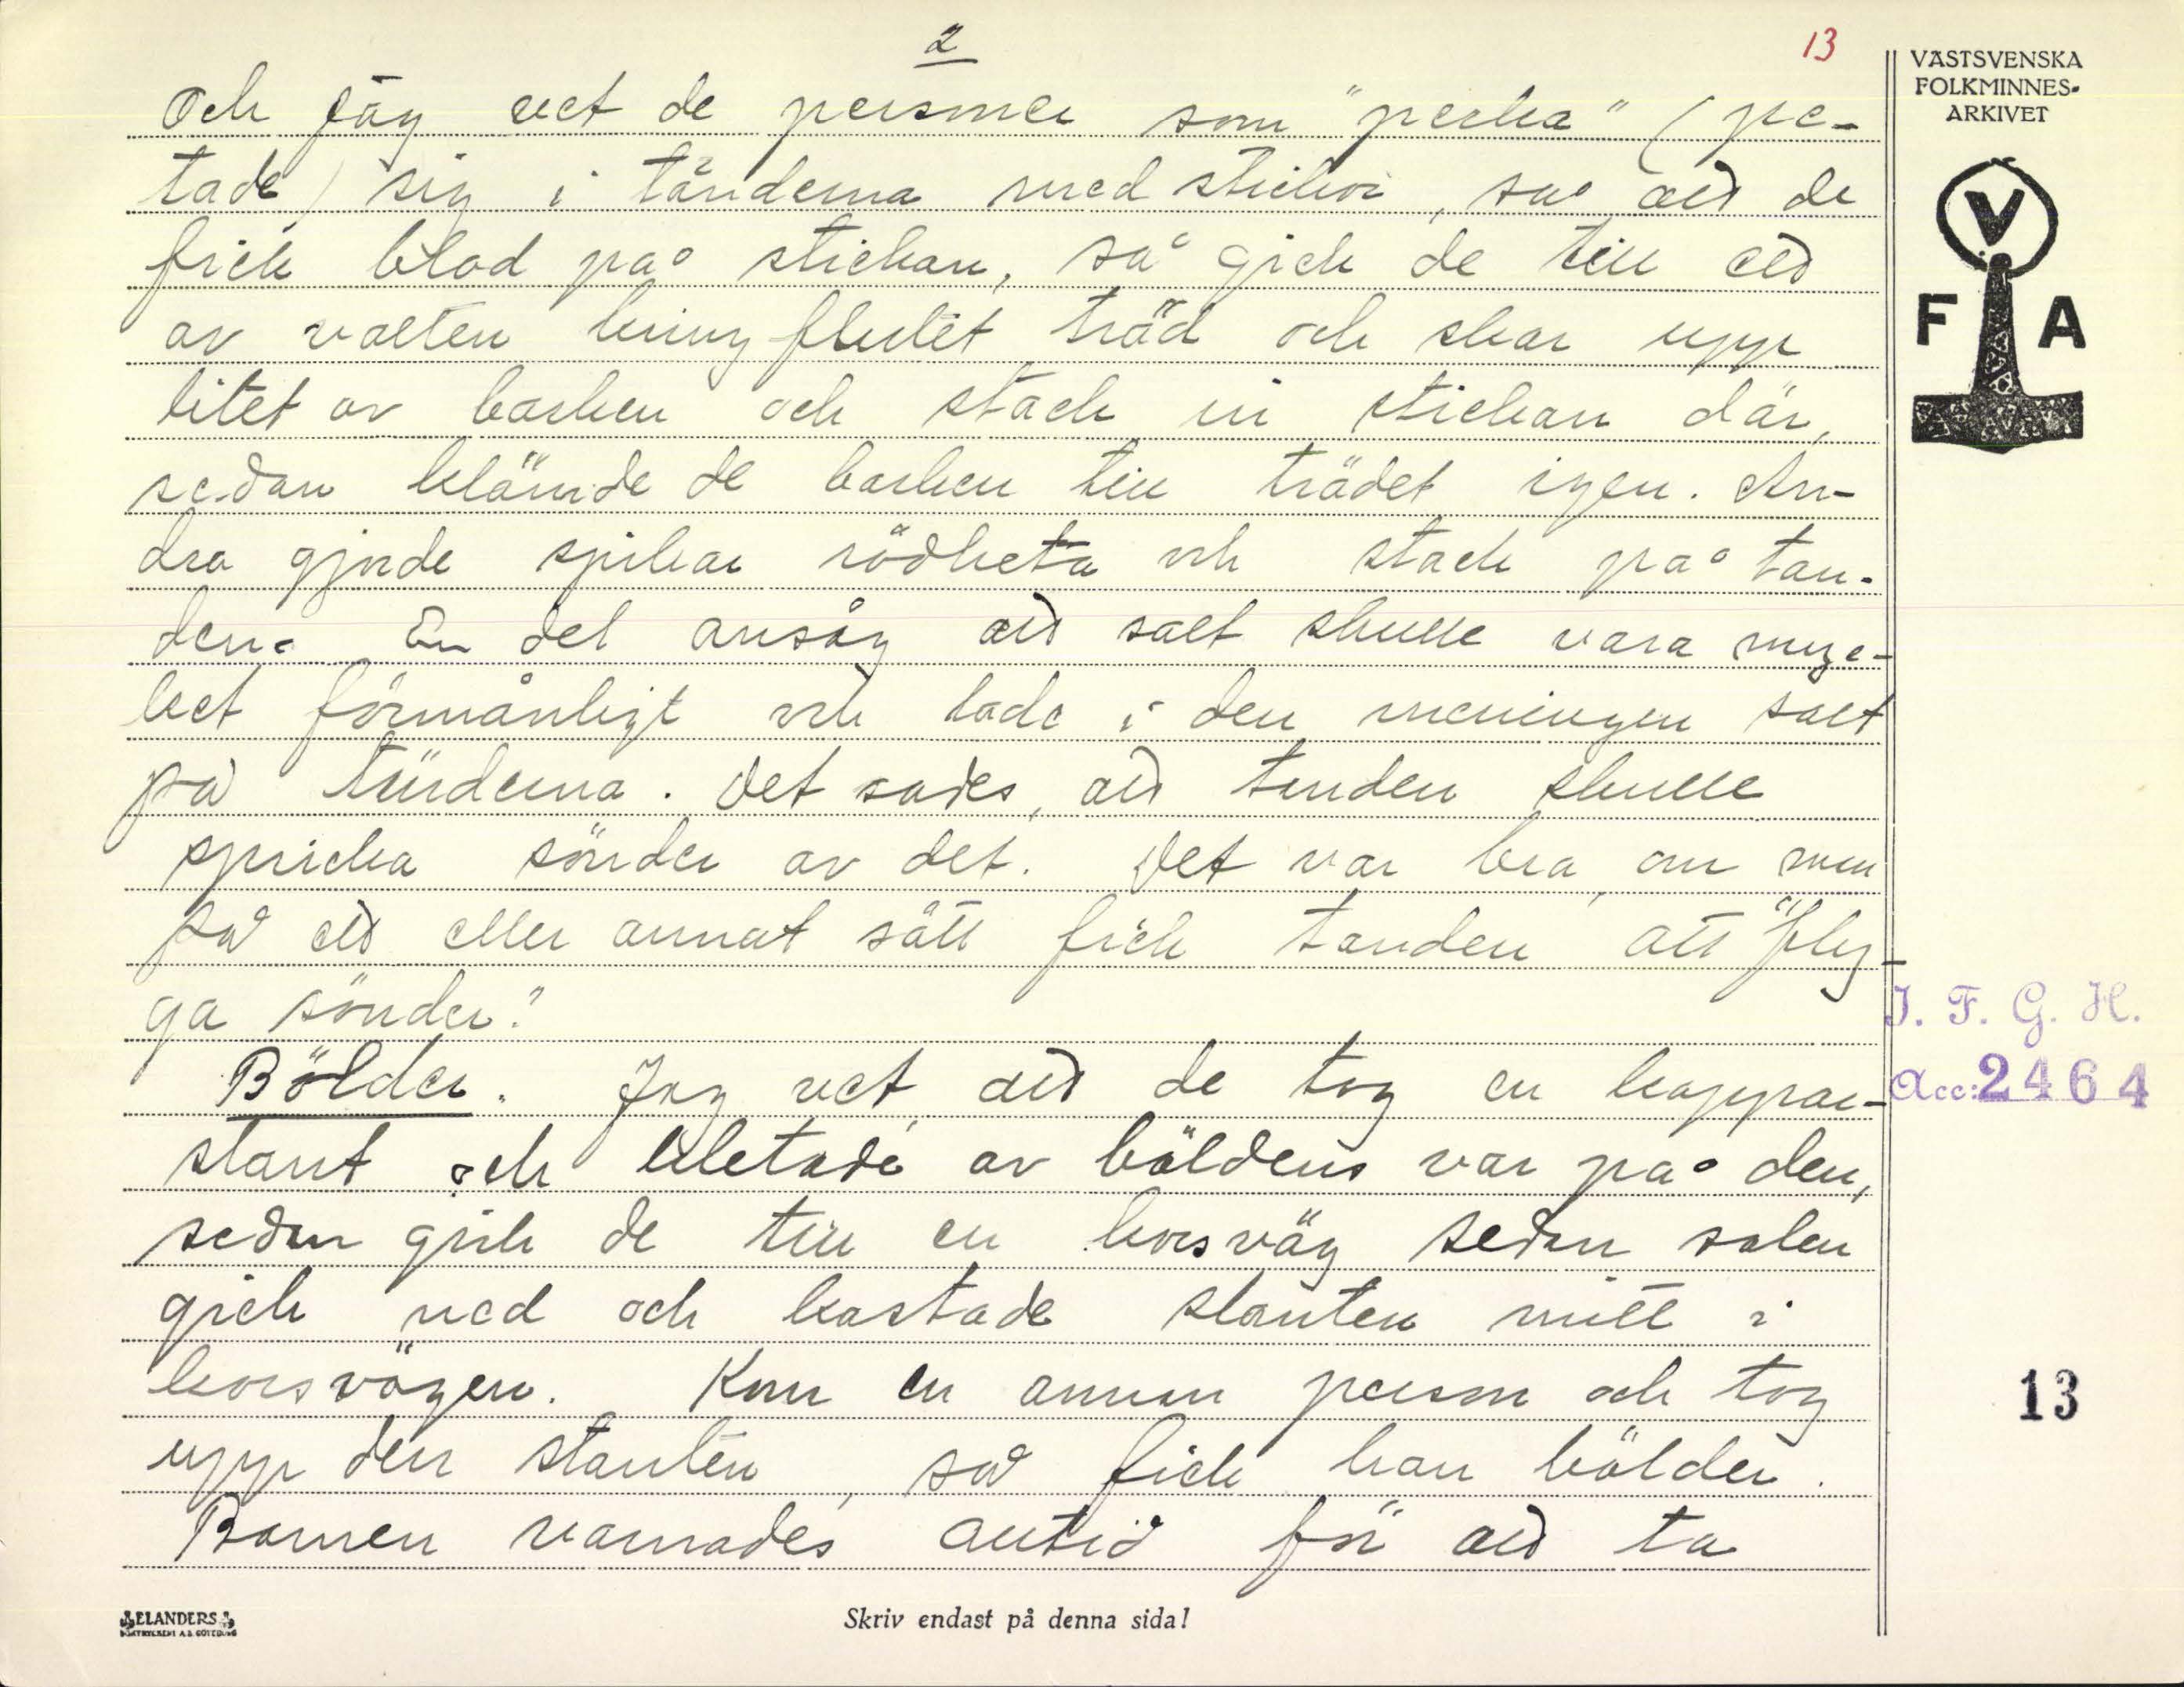 2
13
VÄSTSVENSKA
FOLKMINNES-
ARKIVET
V
F A
Och jag vet de personer som "perka" (pe-
tade) sig i tänderna med stickor, så att de
fick blod på stickan, så gick de till ett
av vatten kringflutet träd och skar upp
litet av barken och stack in stickan där,
sedan klämde de barken till trädet igen. An-
dra gjorde spikar rödheta och stack på tan-
den. En del ansåg att salt skulle vara myc-
ket förmånligt och lade i den meningen salt
på tänderna. Det sades, att tanden skulle
spricka sönder av det. Det var bra, om man
på ett eller annat sätt fick tanden att "fly-
ga sönder."
Bölder. Jag vet, att de tog en koppar-
slant och kletade av böldens var på den,
sedan gick de till en korsväg sedan solen
gick ned och kastade slanten mitt i
korsvägen. Kom en annan person och tog
upp den slanten, så fick han bölder.
Barnen varnades alltid för att ta
J. F. G. H.
Acc: 2464
13
ELANDERS
BOKTRYCKERI A.B. GÖTEBORG
Skriv endast på denna sida!